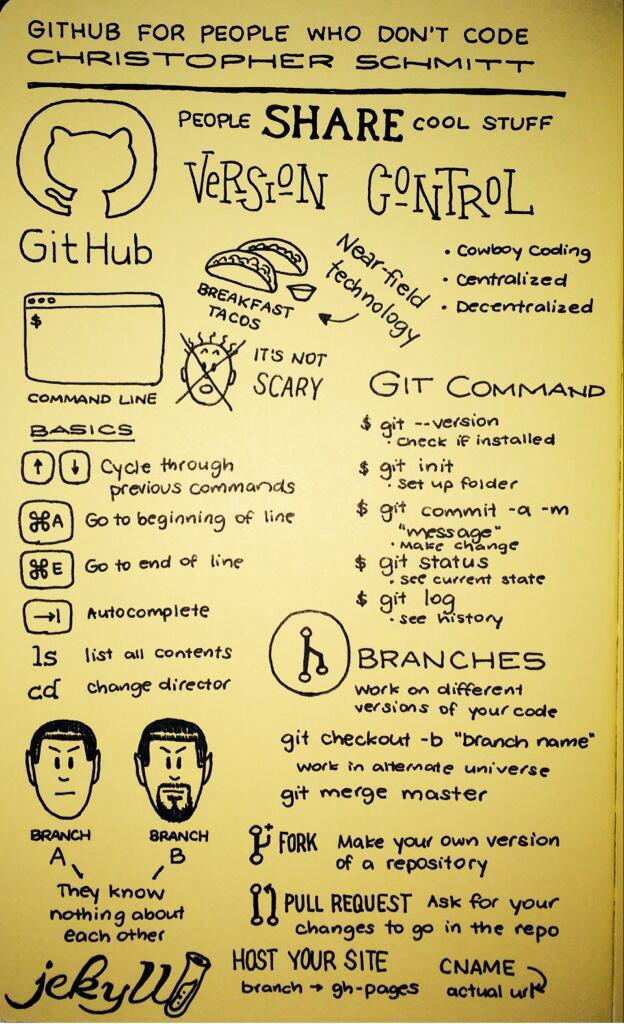 GITHUB FOR PEOPLE WHO DON'T CODE
CHRISTOPHER SCHMITT
PEOPLE SHARE COOL STUFF
VERSION CONTROL
GitHub
BREAKFAST
TACOS
Near-field
technology
• Cowboy Coding
• Centralized
• Decentralized
$
COMMAND LINE
IT'S NOT
SCARY
BASICS
↑ ↓ Cycle through
previous commands
⌘A Go to beginning of line
⌘E Go to end of line
→| Autocomplete
ls list all contents
cd change director
GIT COMMAND
$ git --version
• check if installed
$ git init
• set up folder
$ git commit -a -m
"message"
• Make change
$ git status
• see current state
$ git log
• see history
BRANCHES
work on different
versions of your code
git checkout -b "branch name"
work in alternate universe
git merge master
BRANCH
A
BRANCH
B
They know
nothing about
each other
FORK Make your own version
of a repository
PULL REQUEST Ask for your
changes to go in the repo
jekyll
HOST YOUR SITE
branch → gh-pages
CNAME
actual url